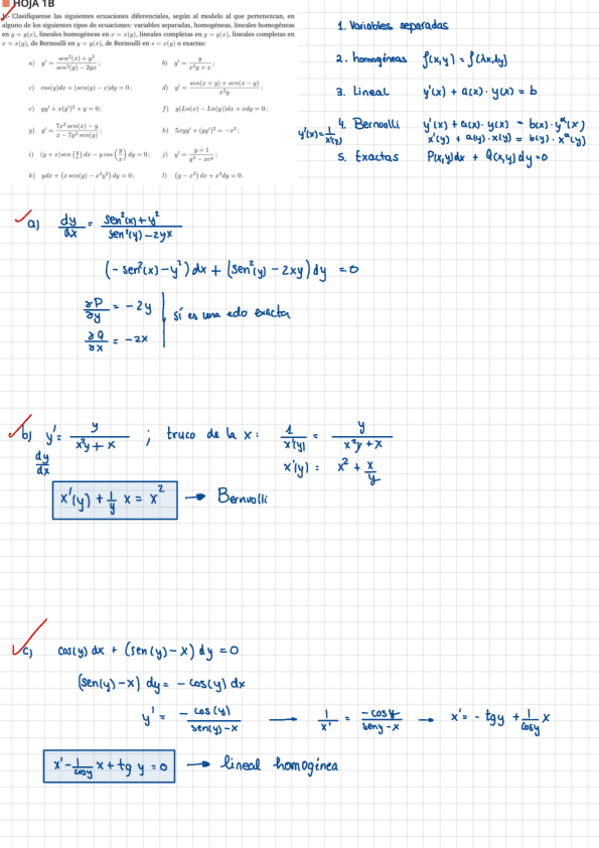 HOJA 1B
1.- Clasifíquense las siguientes ecuaciones diferenciales, según al modelo al que pertenezcan, en
alguno de los siguientes tipos de ecuaciones: variables separadas, homogéneas, lineales homogéneas
en y = y(x), lineales homogéneas en x = x(y), lineales completas en y = y(x), lineales completas en
x = x(y), de Bernoulli en y = y(x), de Bernoulli en x = x(y) o exactas:
a) y' = (sen²(x) + y²)/(sen²(y) − 2yx); b) y' = y/(x²y + x);
c) cos(y)dx + (sen(y) − x)dy = 0; d) y' = (sen(x + y) + sen(x − y))/(x²y);
e) yy' + x(y')² + y = 0; f) y(Ln(x) − Ln(y))dx + xdy = 0;
g) y' = (7x² sen(x) − y)/(x − 7y² sen(y)); h) 5xyy' + (yy')² = −x²;
i) (y + x)sen(y/x) dx − y cos(y/x) dy = 0; j) y' = (y + 1)/(y² − xe^y);
k) ydx + (x sen(y) − x³y²) dy = 0; l) (y − x³) dx + x²dy = 0.
1. Variables separadas
2. homogéneas f(x,y) = f(λx,λy)
3. Lineal y'(x) + a(x)·y(x) = b
4. Bernoulli y'(x) + a(x)·y(x) = b(x)·y^α(x)
y'(x) = 1/x'(y) x'(y) + a(y)·x(y) = b(y)·x^α(y)
5. Exactas P(x,y)dx + Q(x,y)dy=0
a) dy/dx = (sen²(x)+y²)/(sen²(y)−2yx)
(−sen²(x)−y²)dx + (sen²(y) − 2xy)dy = 0
∂P/∂y = −2y
sí es una edo exacta
∂Q/∂x = −2x
b) y' = y/(x²y + x) ; truco de la x: 1/x'(y) = y/(x²y + x)
dy/dx x'(y) = x² + x/y
x'(y) + 1/y x = x² → Bernoulli
c) cos(y) dx + (sen(y) − x) dy = 0
(sen(y) − x) dy = − cos(y) dx
y' = − cos(y)/(sen(y) − x) → 1/x' = −cosy/(seny − x) → x' = − tgy + 1/cosy x
x' − 1/cosy x + tg y = 0 → lineal homogénea